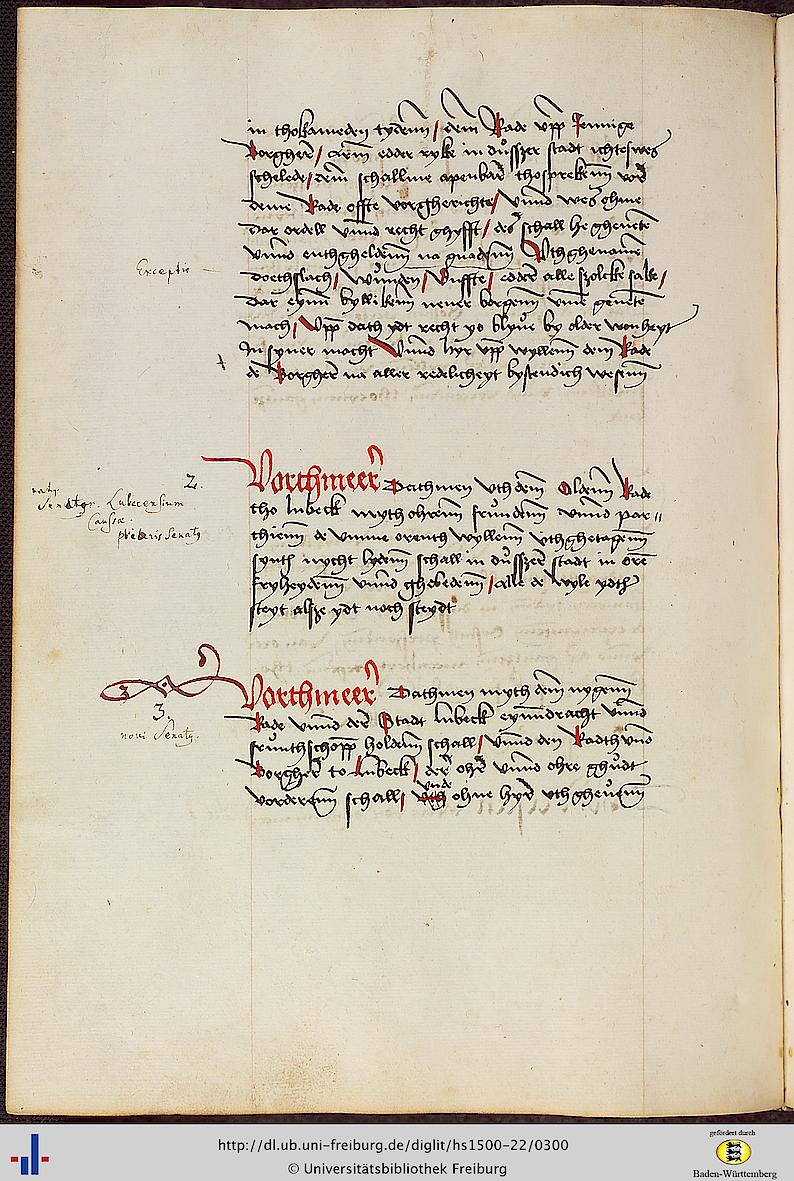 in thokameden tydenn / dem Rade vpp Jennige
Borgher / arm edder ryke in dusszer stadt ichteswes
schelede / dem schallme apenbar thosprekenn vor
deme Rade offte vorgherichte / vnnd wes ghme
dar ordell vnnd recht ghyfft / des schall he ghenete
vnnd enthgheldenn na gnadenn Vthghenamē
Exceptis
doethslach / wunden / Vuffte / edder alle szolcke sake /
dar eynn byllikenn nener borgenn vme genete
mach / Vpp dath ydt recht yo blyue by older wonheyt
Jn syner macht Vnnd hyr vpp wyllenn dem Rade
de Borgher na aller redelicheyt bystendich wesenn
2.
Vorthmeer Dathmen vth dem Oldenn Rade
Senatgr. Lubecensium
Causse
tho lubeck myth ohrenn frundenn vnnd par=
thienn de vmme orenth wyllenn vthghetagenn
synth nycht lydenn schall in dusszer stadt in ore
fryheydenn vnnd ghebedenn / alle de wyle ydth
steyt alsze ydt noch steydt
3.
noui Senatg.
Vorthmeer Dathmen myth dem nygenn
Rade vnnd der Stadt lubeck eynndracht vnnd
frunthschopp holdenn schall / vnnd den Radth vnd
Borgher to Lubeck / der ohr vnnd ohre ghudt
vorderenn schall / vnde ohne hyr vth gheuenn
http://dl.ub.uni-freiburg.de/diglit/hs1500-22/0300
© Universitätsbibliothek Freiburg
gefördert durch
Baden-Württemberg